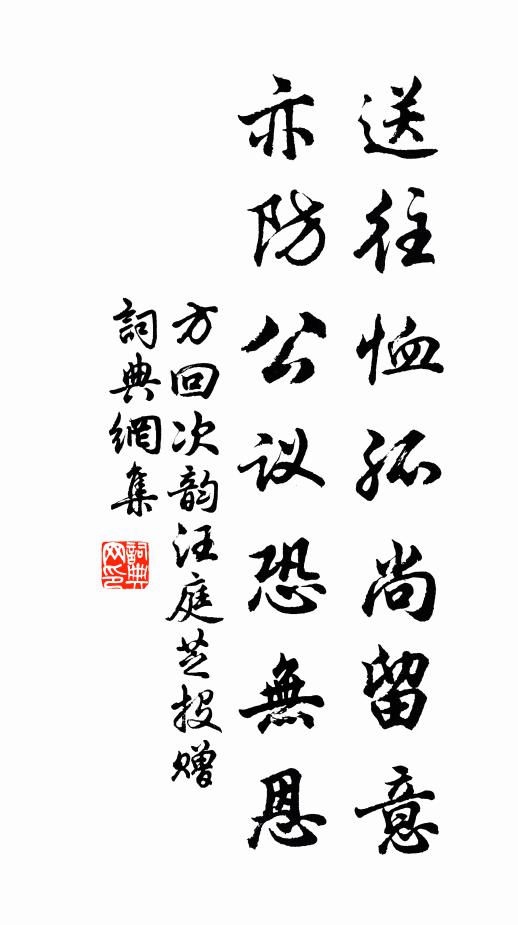 送往恤孤尚留意
亦防公议恐無恩
方回次韵汪庭芝投赠
詞典網集
詞典网印